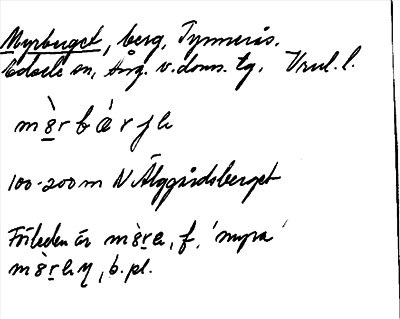 Myrberget, berg, Tynnerås.
Edsele sn, Ång. v. doms. tg.
mèrbærje
100-200 m N Älggårdsberget
Förleden är mère, f, 'myra'
mèreŋ, b. pl.